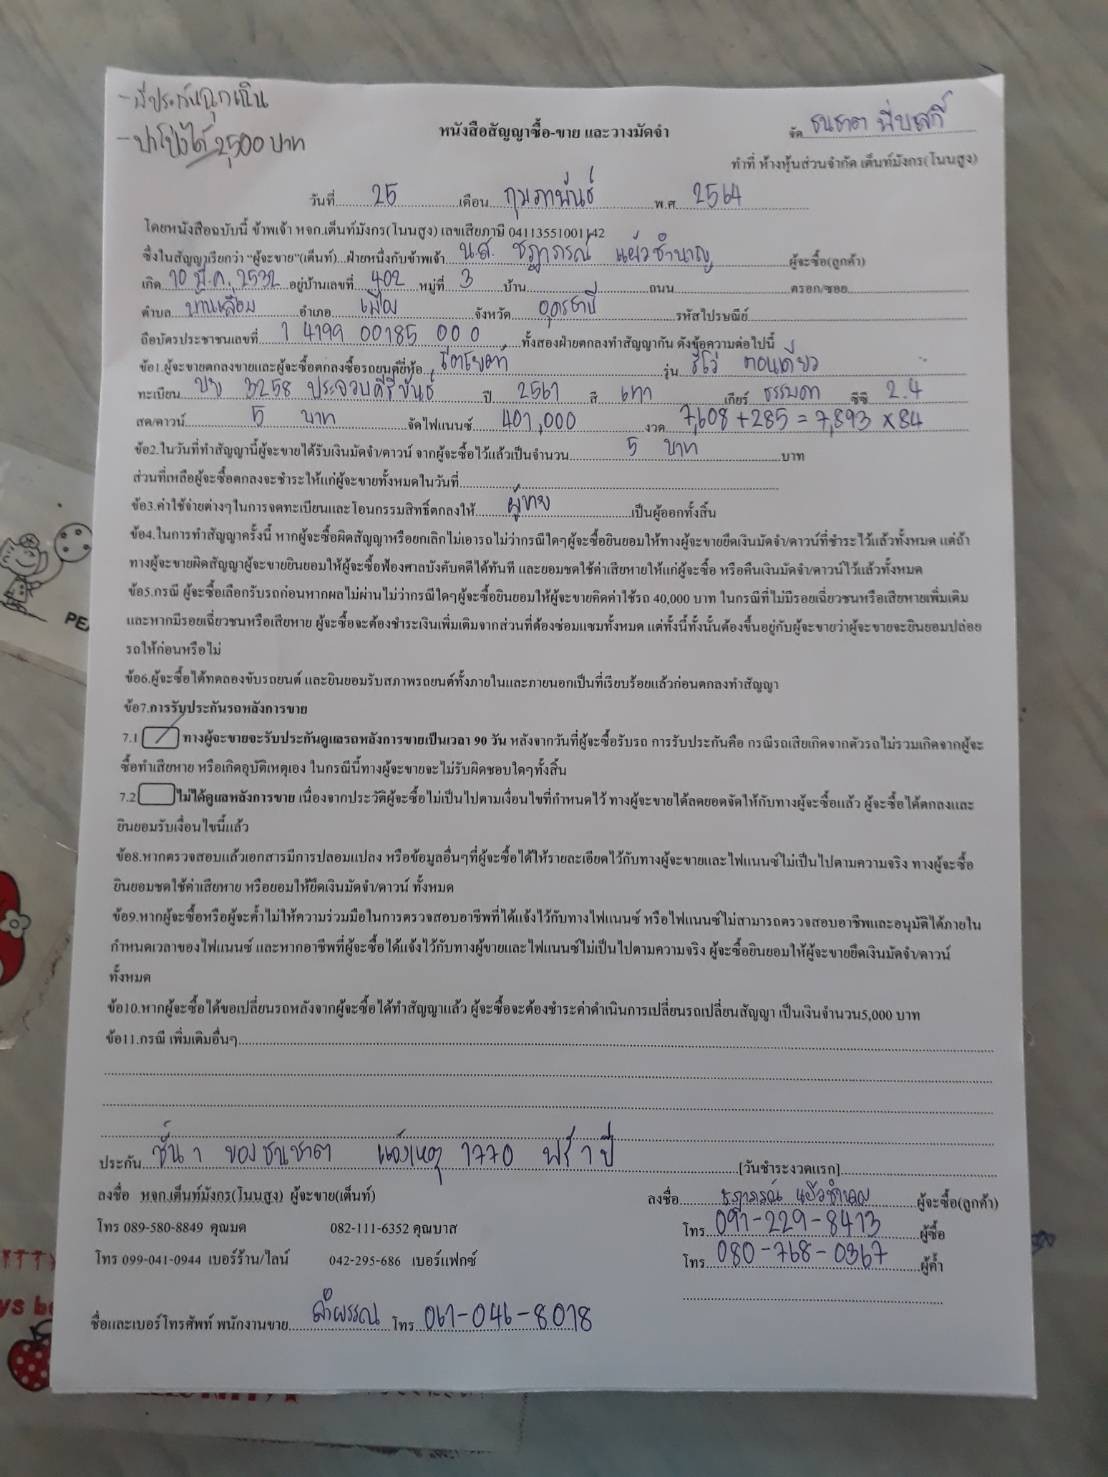 - มีประกันฉุกเฉิน
- ปาโป้งได้ 2,500 บาท
หนังสือสัญญาซื้อ-ขาย และวางมัดจำ
จัด ธนชาต
ทำที่ ห้างหุ้นส่วนจำกัด เต็นท์มังกร(โนนสูง)
วันที่ 25 เดือน กุมภาพันธ์ พ.ศ. 2564
โดยหนังสือฉบับนี้ ข้าพเจ้า หจก.เต็นท์มังกร(โนนสูง) เลขเสียภาษี 0411355100142
ซึ่งในสัญญาเรียกว่า "ผู้จะขาย"(เต็นท์)...ฝ่ายหนึ่งกับข้าพเจ้า น.ส. ชฎาภรณ์ แผ้วชำนาญ ผู้จะซื้อ(ลูกค้า)
เกิด 10 มี.ค. 2532 อยู่บ้านเลขที่ 402 หมู่ที่ 3 บ้าน ถนน ตรอก/ซอย
ตำบล บ้านเลื่อม อำเภอ เมือง จังหวัด อุดรธานี รหัสไปรษณีย์
ถือบัตรประชาชนเลขที่ 1 4199 00185 00 0 ทั้งสองฝ่ายตกลงทำสัญญากัน ดังข้อความต่อไปนี้
ข้อ1.ผู้จะขายตกลงขายและผู้จะซื้อตกลงซื้อรถยนต์ยี่ห้อ โตโยต้า รุ่น รีโว่ ตอนเดียว
ทะเบียน บบ 3258 ประจวบคีรีขันธ์ ปี 2561 สี เทา เกียร์ ธรรมดา ซีซี 2.4
สด/ดาวน์ 5 บาท จัดไฟแนนซ์ 401,000 งวด 7,608 + 285 = 7,893 x 84
ข้อ2.ในวันที่ทำสัญญานี้ผู้จะขายได้รับเงินมัดจำ/ดาวน์ จากผู้จะซื้อไว้แล้วเป็นจำนวน 5 บาท บาท
ส่วนที่เหลือผู้จะซื้อตกลงจะชำระให้แก่ผู้จะขายทั้งหมดในวันที่
ข้อ3.ค่าใช้จ่ายต่างๆในการจดทะเบียนและโอนกรรมสิทธิ์ตกลงให้ ผู้ขาย เป็นผู้ออกทั้งสิ้น
ข้อ4.ในการทำสัญญาครั้งนี้ หากผู้จะซื้อผิดสัญญาหรือยกเลิกไม่เอารถไม่ว่ากรณีใดๆผู้จะซื้อยินยอมให้ทางผู้จะขายยึดเงินมัดจำ/ดาวน์ที่ชำระไว้แล้วทั้งหมด แต่ถ้า
ทางผู้จะขายผิดสัญญาผู้จะขายยินยอมให้ผู้จะซื้อฟ้องศาลบังคับคดีได้ทันที และยอมชดใช้ค่าเสียหายให้แก่ผู้จะซื้อ หรือคืนเงินมัดจำ/ดาวน์ไว้แล้วทั้งหมด
ข้อ5.กรณี ผู้จะซื้อเลือกรับรถก่อนหากผลไม่ผ่านไม่ว่ากรณีใดๆผู้จะซื้อยินยอมให้ผู้จะขายคิดค่าใช้รถ 40,000 บาท ในกรณีที่ไม่มีรอยเฉี่ยวชนหรือเสียหายเพิ่มเติม
และหากมีรอยเฉี่ยวชนหรือเสียหาย ผู้จะซื้อจะต้องชำระเงินเพิ่มเติมจากส่วนที่ต้องซ่อมแซมทั้งหมด แต่ทั้งนี้ทั้งนั้นต้องขึ้นอยู่กับผู้จะขายว่าผู้จะขายจะยินยอมปล่อย
รถให้ก่อนหรือไม่
ข้อ6.ผู้จะซื้อได้ทดลองขับรถยนต์ และยินยอมรับสภาพรถยนต์ทั้งภายในและภายนอกเป็นที่เรียบร้อยแล้วก่อนตกลงทำสัญญา
ข้อ7.การรับประกันรถหลังการขาย
7.1 ทางผู้จะขายจะรับประกันดูแลรถหลังการขายเป็นเวลา 90 วัน หลังจากวันที่ผู้จะซื้อรับรถ การรับประกันคือ กรณีรถเสียเกิดจากตัวรถไม่รวมเกิดจากผู้จะ
ซื้อทำเสียหาย หรือเกิดอุบัติเหตุเอง ในกรณีนี้ทางผู้จะขายจะไม่รับผิดชอบใดๆทั้งสิ้น
7.2 ไม่ได้ดูแลหลังการขาย เนื่องจากประวัติผู้จะซื้อไม่เป็นไปตามเงื่อนไขที่กำหนดไว้ ทางผู้จะขายได้ลดยอดจัดให้กับทางผู้จะซื้อแล้ว ผู้จะซื้อได้ตกลงและ
ยินยอมรับเงื่อนไขนี้แล้ว
ข้อ8.หากตรวจสอบแล้วเอกสารมีการปลอมแปลง หรือข้อมูลอื่นๆที่ผู้จะซื้อได้ให้รายละเอียดไว้กับทางผู้จะขายและไฟแนนซ์ไม่เป็นไปตามความจริง ทางผู้จะซื้อ
ยินยอมชดใช้ค่าเสียหาย หรือยอมให้ยึดเงินมัดจำ/ดาวน์ ทั้งหมด
ข้อ9.หากผู้จะซื้อหรือผู้จะค้ำไม่ให้ความร่วมมือในการตรวจสอบอาชีพที่ได้แจ้งไว้กับทางไฟแนนซ์ หรือไฟแนนซ์ไม่สามารถตรวจสอบอาชีพและอนุมัติได้ภายใน
กำหนดเวลาของไฟแนนซ์ และหากอาชีพที่ผู้จะซื้อได้แจ้งไว้กับทางผู้ขายและไฟแนนซ์ไม่เป็นไปตามความจริง ผู้จะซื้อยินยอมให้ผู้จะขายยึดเงินมัดจำ/ดาวน์
ทั้งหมด
ข้อ10.หากผู้จะซื้อได้ขอเปลี่ยนรถหลังจากผู้จะซื้อได้ทำสัญญาแล้ว ผู้จะซื้อจะต้องชำระค่าดำเนินการเปลี่ยนรถเปลี่ยนสัญญา เป็นเงินจำนวน5,000 บาท
ข้อ11.กรณี เพิ่มเติมอื่นๆ
ประกัน ชั้น 1 ของธนชาต แจ้งเหตุ 1770 ฟรี 1 ปี [วันชำระงวดแรก]
ลงชื่อ หจก.เต็นท์มังกร(โนนสูง) ผู้จะขาย(เต็นท์) ลงชื่อ ชฎาภรณ์ แผ้วชำนาญ ผู้จะซื้อ(ลูกค้า)
โทร 089-580-8849 คุณมด 082-111-6352 คุณบาส โทร 091-229-8413 ผู้ซื้อ
โทร 099-041-0944 เบอร์ร้าน/ไลน์ 042-295-686 เบอร์แฟกซ์ โทร 080-768-0367 ผู้ค้ำ
ชื่อและเบอร์โทรศัพท์ พนักงานขาย ลำพรรณ โทร 061-046-8018